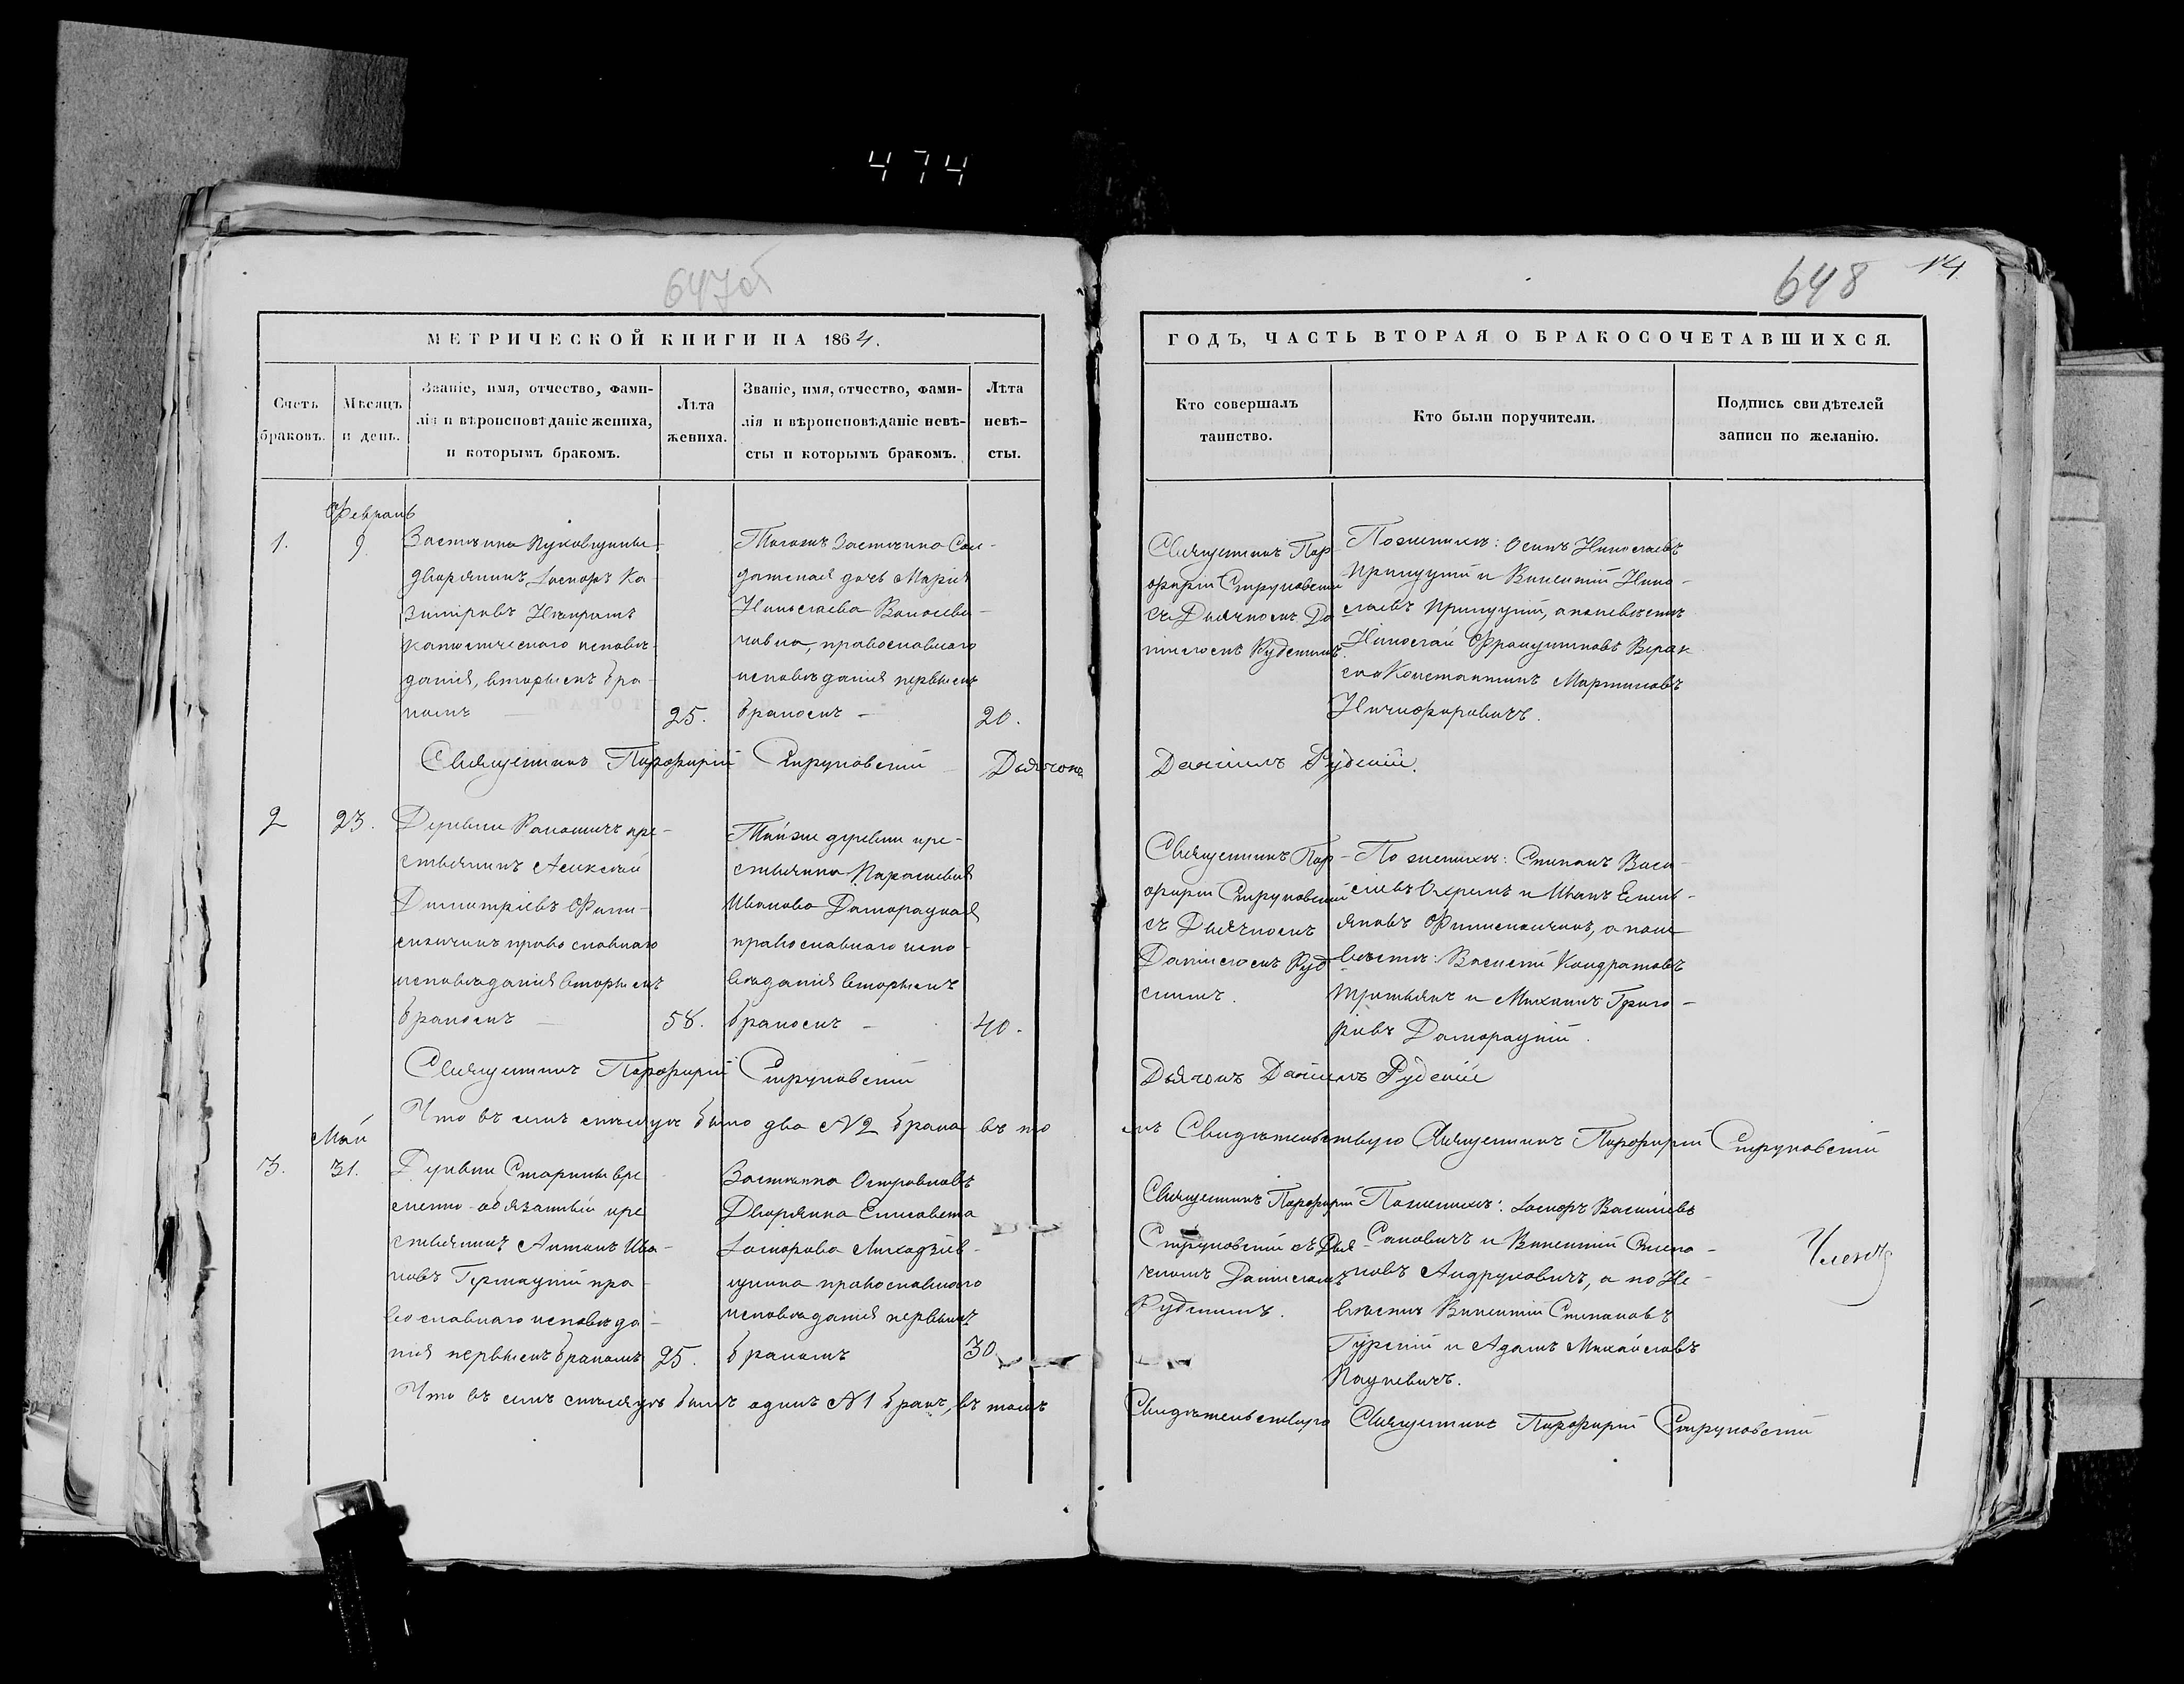 474
647об
648
14
МЕТРИЧЕСКОЙ КНИГИ НА 1864.
Счетъ
браковъ.
Мѣсяцъ
и день.
Званіе, имя, отчество, фами-
лія и вѣроисповѣданіе жениха,
и которымъ бракомъ.
Лѣта
жениха.
Званіе, имя, отчество, фами-
лія и вѣроисповѣданіе невѣ-
сты и которымъ бракомъ.
Лѣта
невѣ-
сты.
ГОДЪ, ЧАСТЬ ВТОРАЯ О БРАКОСОЧЕТАВШИХСЯ.
Кто совершалъ
таинство.
Кто были поручители.
Подпись свидѣтелей
записи по желанію.
Февраль
1.
9
Застѣнка
дворянинъ, Ка-
католическаго исповѣ-
данія, вторымъ бра-
комъ
25.
Застѣнка
дочь Марія
Николаева
православнаго
исповѣданія первымъ
бракомъ
20.
Священникъ Пор-
фирій Струковскій
съ Дьячкомъ Да-
ніиломъ Рудскимъ.
По женихѣ: Осипъ Николаевъ
и Викентій Нико-
лаевъ а по невѣстѣ
Николай Францишковъ
Константинъ Мартиновъ
Священникъ Порфирій Струковскій Дьячокъ Даніилъ Рудскій.
2
23.
Деревни кре-
стьянинъ Алексѣй
Димитріевъ Фили-
православнаго
исповѣданія вторымъ
бракомъ
58.
Той же деревни кре-
стьянка Параскевія
Иванова Доморацкая
православнаго испо-
вѣданія вторымъ
бракомъ
40.
Священникъ Пор-
фирій Струковскій
съ Дьячкомъ
Даніиломъ Руд-
скимъ.
По женихѣ: Степанъ Васи-
льевъ Охремъ и Иванъ Емель-
яновъ а по не-
вѣстѣ: Василій Кондратовъ
Третьякъ и Михаилъ Григо-
рьевъ Доморацкій.
Священникъ Порфирій Струковскій Дьячокъ Даніилъ Рудскій
Что въ семъ мѣсяцѣ было два № 2 брака въ томъ Свидѣтельствую Священникъ Порфирій Струковскій
Май
3.
31.
Деревни Старины вре-
менно-обязанный кре-
стьянинъ Антонъ Ива-
новъ пра-
вославнаго исповѣда-
нія первымъ бракомъ
25.
Застѣнка Островковъ
Дворянка Елисавета
православнаго
исповѣданія первымъ
бракомъ
30
Священникъ Порфирій
Струковскій съ Дья-
чкомъ Даніиломъ
Рудскимъ.
По женихѣ: Васильевъ
и Викентій Степа-
новъ Андруковичъ, а по Не-
вѣстѣ Викентій Степановъ
Гурскій и Адамъ Михайловъ
Пацкевичъ.
Членъ
Что въ семъ мѣсяцѣ былъ одинъ № 1 бракъ, въ томъ Свидѣтельствую Священникъ Порфирій Струковскій